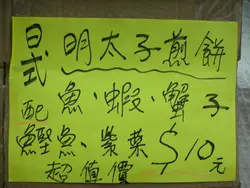 日式 明太子煎餅
配魚、蝦、蟹子
鰹魚、紫菜 $10元
超值價